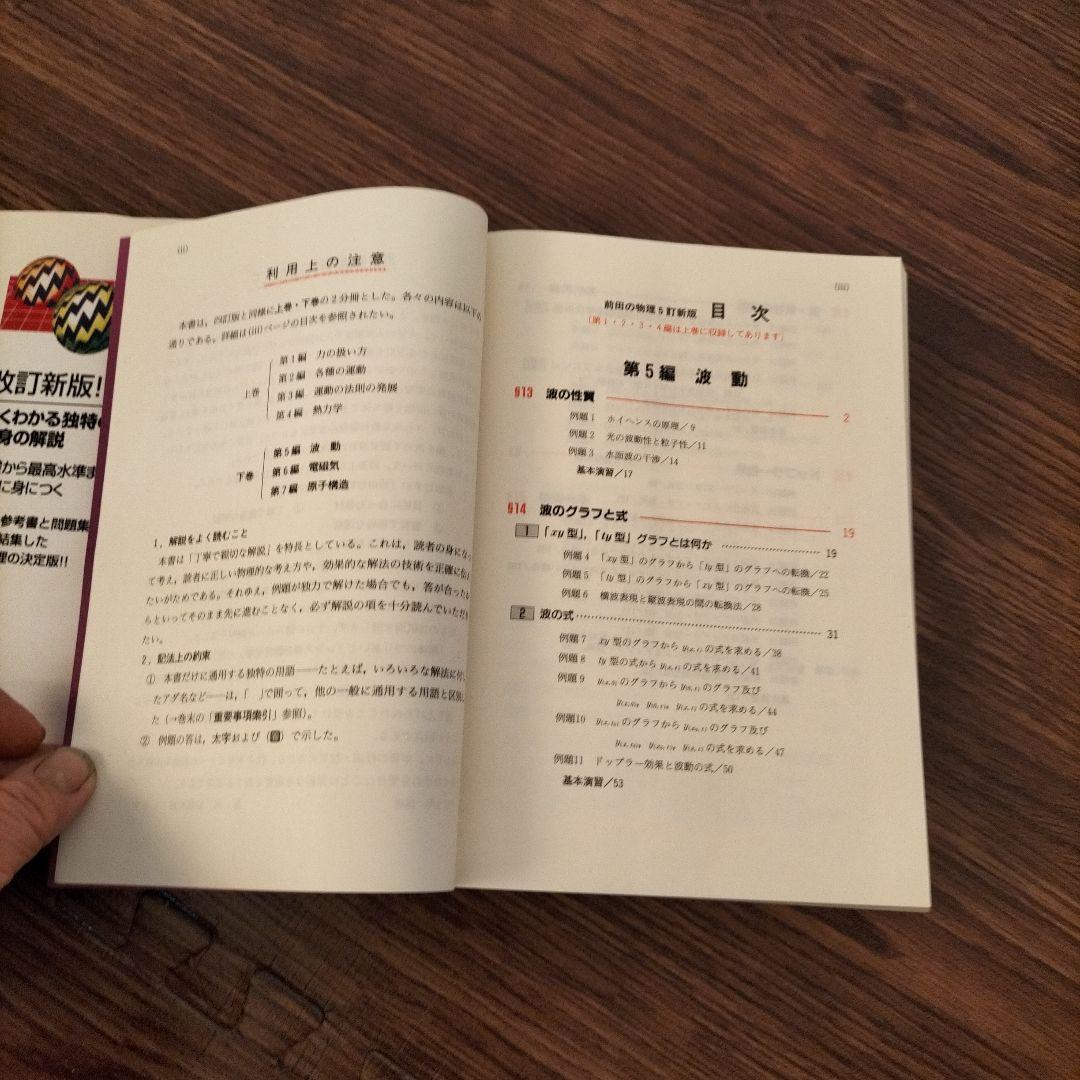 改訂新版!
くわかる独特
身の解説
から最高水準ま
に身につく
参考書と問題集
結集した
理の決定版!!
(ii)
利用上の注意
本書は,四訂版と同様に上巻・下巻の2分冊とした。各々の内容は以下の
通りである。詳細は(iii)ページの目次を参照されたい。
上巻
第1編 力の扱い方
第2編 各種の運動
第3編 運動の法則の発展
第4編 熱力学
下巻
第5編 波動
第6編 電磁気
第7編 原子構造
1.解説をよく読むこと
本書は「丁寧で親切な解説」を特長としている。これは,読者の身になっ
て考え,読者に正しい物理的な考え方や,効果的な解法の技術を正確に伝え
たいがためである。それゆえ,例題が独力で解けた場合でも,答が合ったか
らといってそのまま先に進むことなく,必ず解説の項を十分読んでいただき
たい。
2.記法上の約束
① 本書だけに通用する独特の用語――たとえば,いろいろな解法に付し
たアダ名など――は,「 」で囲って,他の一般に通用する用語と区別し
た(→巻末の「重要事項索引」参照)。
② 例題の答は,太字および(答)で示した。
(iii)
前田の物理5訂新版 目次
(第1・2・3・4編は上巻に収録してあります)
第5編 波動
§13 波の性質 2
例題1 ホイヘンスの原理/9
例題2 光の波動性と粒子性/11
例題3 水面波の干渉/14
基本演習/17
§14 波のグラフと式 19
1 「xy型」,「ty型」グラフとは何か 19
例題4 「xy型」のグラフから「ty型」のグラフへの転換/22
例題5 「ty型」のグラフから「xy型」のグラフへの転換/25
例題6 横波表現と縦波表現の間の転換法/28
2 波の式 31
例題7 xy型のグラフからy(x,t)の式を求める/38
例題8 ty型の式からy(x,t)の式を求める/41
例題9 のグラフから のグラフ及び
の式を求める/44
例題10 のグラフから のグラフ及び
の式を求める/47
例題11 ドップラー効果と波動の式/50
基本演習/53